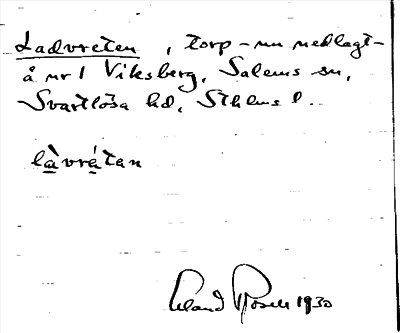 Ladvreten, torp – nu nedlagt –
å nr 1 Viksberg, Salems sn,
Svartlösa hd, Sthlms l.
làvrátan
Erland Rosell 1930